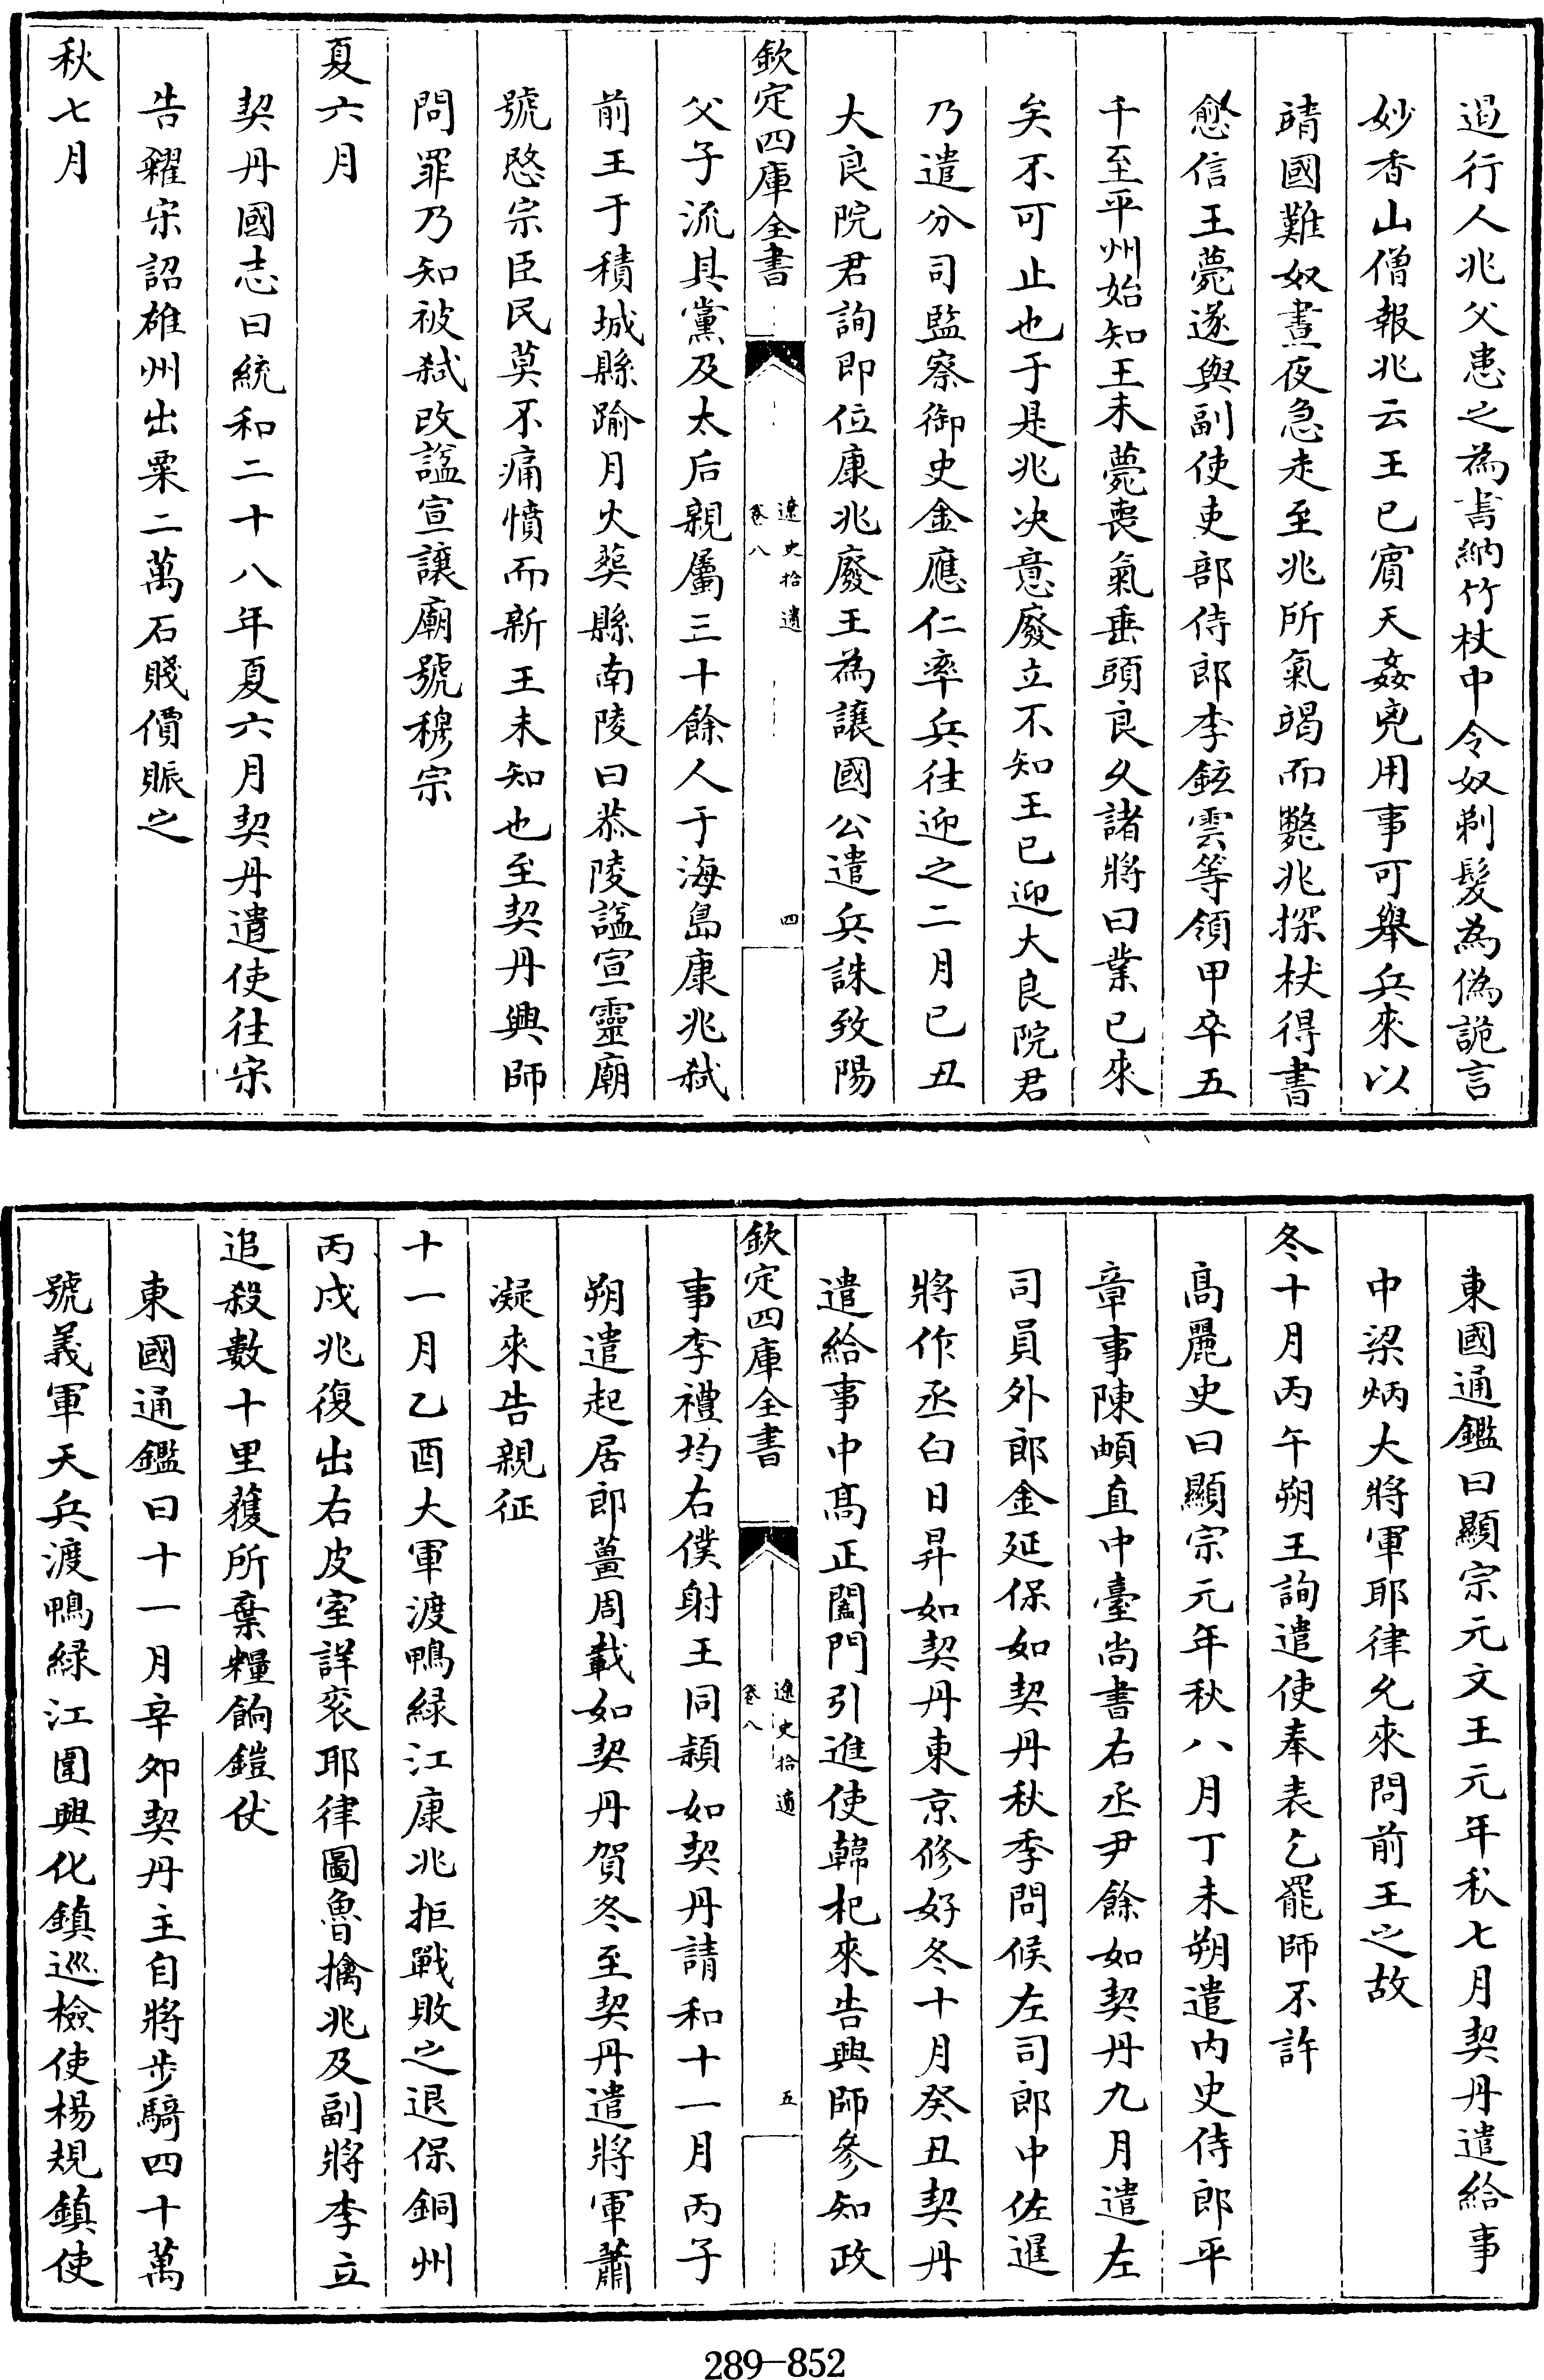 過行人兆父患之為書納竹杖中令奴剃髮為偽詭言
妙香山僧報兆云王已賓天姦兇用事可舉兵來以
靖國難奴晝夜急走至兆所氣竭而斃兆探杖得書
愈信王薨遂與副使吏部侍郎李鉉雲等領甲卒五
千至平州始知王未薨喪氣垂頭良久諸將曰業已來
矣不可止也于是兆决意廢立不知王已迎大良院君
乃遣分司監察御史金應仁率兵往迎之二月已丑
大良院君詢即位康兆廢王為讓國公遣兵誅致陽
欽定四庫全書
遼史拾遺
卷八
四
父子流其黨及太后親屬三十餘人于海島康兆弑
前王于積城縣踰月火𦵏縣南陵曰恭陵謚宣靈廟
號愍宗臣民莫不痛憤而新王未知也至契丹興師
問罪乃知被弑改諡宣讓廟號穆宗
夏六月
契丹國志曰統和二十八年夏六月契丹遣使往宋
告糴宋詔雄州出粟二萬石賤價賑之
秋七月
東國通鑑曰顯宗元文王元年秋七月契丹遣給事
中梁炳大將軍耶律允來問前王之故
冬十月丙午朔王詢遣使奉表乞罷師不許
髙麗史曰顯宗元年秋八月丁未朔遣内史侍郎平
章事陳頔直中臺尚書右丞尹餘如契丹九月遣左
司員外郎金延保如契丹秋季問候左司郎中佐暹
將作丞白日昇如契丹東京修好冬十月癸丑契丹
遣給事中髙正閣門引進使韓杞來告興師參知政
欽定四庫全書
遼史拾遺
卷八
五
事李禮均右僕射王同頴如契丹請和十一月丙子
朔遣起居郎薑周載如契丹賀冬至契丹遣將軍蕭
凝來告親征
十一月乙酉大軍渡鴨緑江康兆拒戰敗之退保銅州
丙戌兆復出右皮室詳衮耶律圖魯擒兆及副將李立
追殺數十里獲所棄糧餉鎧仗
東國通鑑曰十一月辛夘契丹主自將步騎四十萬
號義軍天兵渡鴨緑江圍興化鎮巡檢使楊規鎮使
289-852